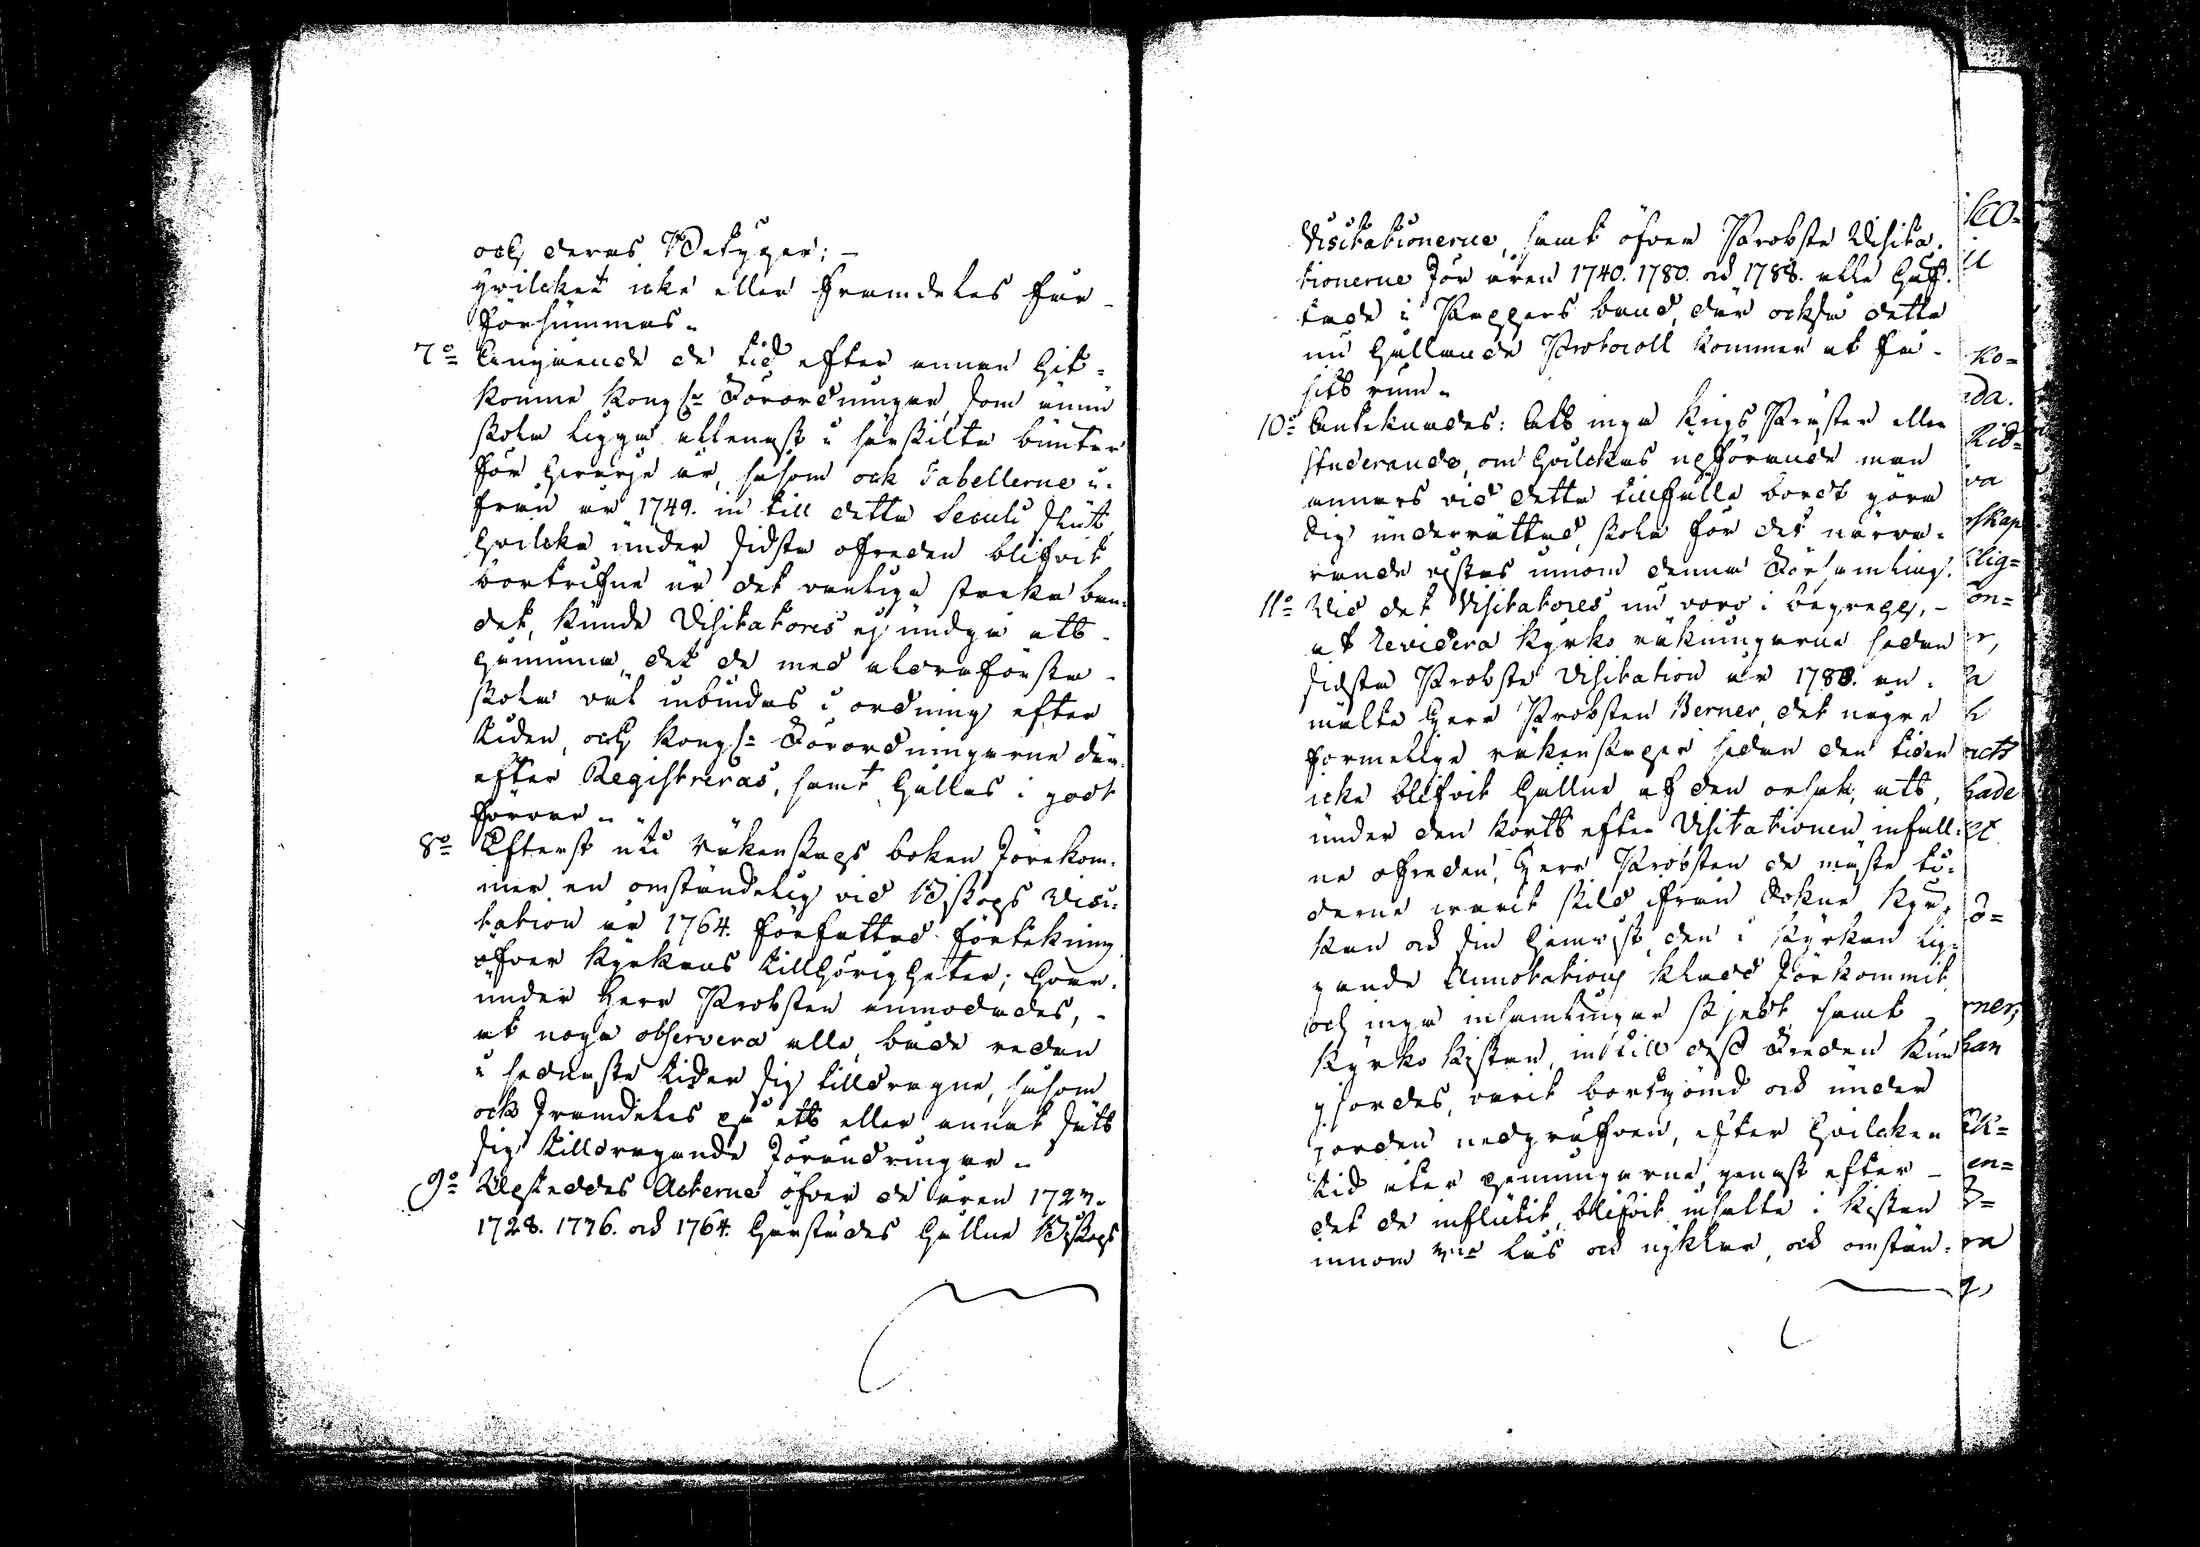 och deras Betyger; -
hvilcket icke eller framdeles får
försummas.
7:o Angående de tid efter annan hit-
komne Kongl:e Förordningar, som ännu
skola ligga allenast i särskilta bunter
för hvarje år, såsom ock Tabellerne i-
från år 1749. in till detta Seculi slut,
hvilcka under sidsta ofreden blifvit
bortrifne ur det vanliga starka ban-
det, kunde Visitatores ej undgå att
påminna, det de med aldraförsta
skola väl inbindas i ordning efter
tiden, och Kongl:e Förordningarne där-
efter Registreras, samt hållas i godt
förvar.
8:o Efterst uti Räkenskaps boken förekom-
mer en omständelig vid Biskops Visi-
tation år 1764. författad förtekning
öfver Kyrkans tillhörigheter; hvar-
under Herr Probsten anmodades, -
at noga observera alla, både redan
i sednaste tider sig tilldragne, såsom
ock framdeles på ett eller annat sätt
sig tilldragande förändringar.
9:o Upstaddes Acterne öfver de åren 1727.
1728. 1776. och 1764. härstädes hållne Biskops
Visitationerne, samt öfver Probste Visita-
tionerne för åren 1740. 1780. och 1788. alla häf-
tade i Pappers band, där också detta
nu hållande Protocoll kommer at få
sitt rum.
10:o Antecknades: Att inga Krigs Präster eller
studerande, om hvilckas upförande man
annars vid detta tillfälle bordt göra
sig underrättad, skola för det närva-
rande vistas innom denna Församling.
11:o Vid det Visitatores nu voro i begrepp, -
at Revidera Kyrko räkningarne sedan
sidsta Probste Visitation år 1788. an-
mälte Herr Probsten Berner, det någre
formelige räkenskaper sedan den tiden
icke blifvit hållne af den orsak, att,
under den kort efter Visitationen infall-
ne ofreden, Herr Probsten de mäste ti-
derne varit skild ifrån Sokne Kyr-
kan och sin hemvist, den i Kyrkan lig-
gande Annotations Kladd förkommit,
och inga insamlingar skjedt, samt
Kyrko Kistan, intill dess Freden kun-
gjordes, varit bortgömd och under
jorden nedgräfven, efter hvilcken
tid åter penningarne, genast efter -
det de influtit, blifvit insatte i Kistan
innom lås och nycklar, och omstän-